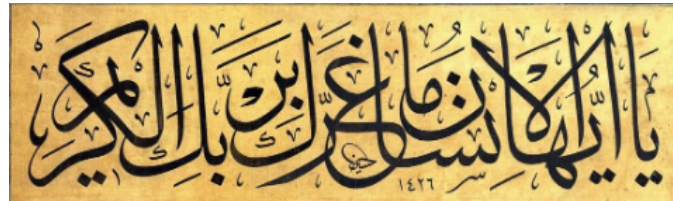 يا ايها الانسان ما غرك بربك الكريم
١٤٢٦